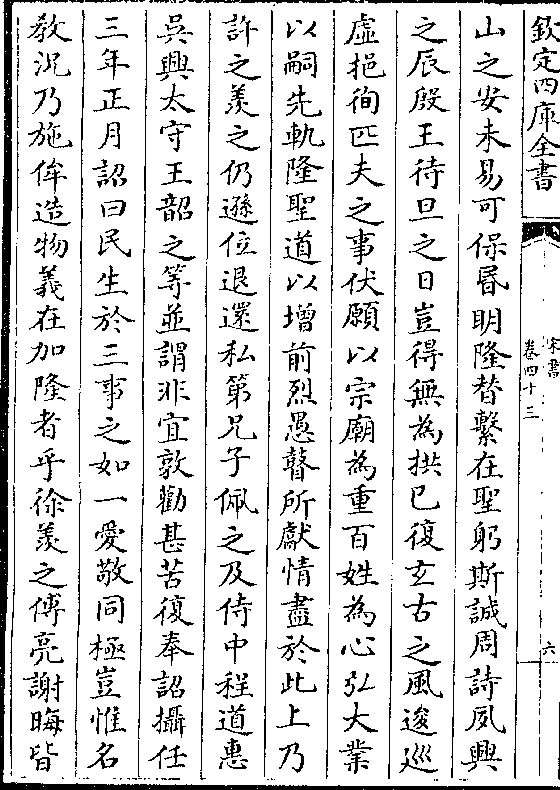 欽定四庫全書
宋書
卷四十三
六
山之安未易可保昬明隆替繫在聖躬斯誠周詩夙興
之辰殷王待旦之日豈得無為拱已復玄古之風逡廵
虛挹徇匹夫之事伏願以宗廟為重百姓為心弘大業
以嗣先軌隆聖道以增前烈愚瞽所獻情盡於此上乃
許之羡之仍遜位退還私第兄子佩之及侍中程道惠
吳興太守王韶之等並謂非宜敦勸甚苦復奉詔攝任
三年正月詔曰民生於三事之如一愛敬同極豈惟名
教況乃施侔造物義在加隆者乎徐羡之傅亮謝晦皆